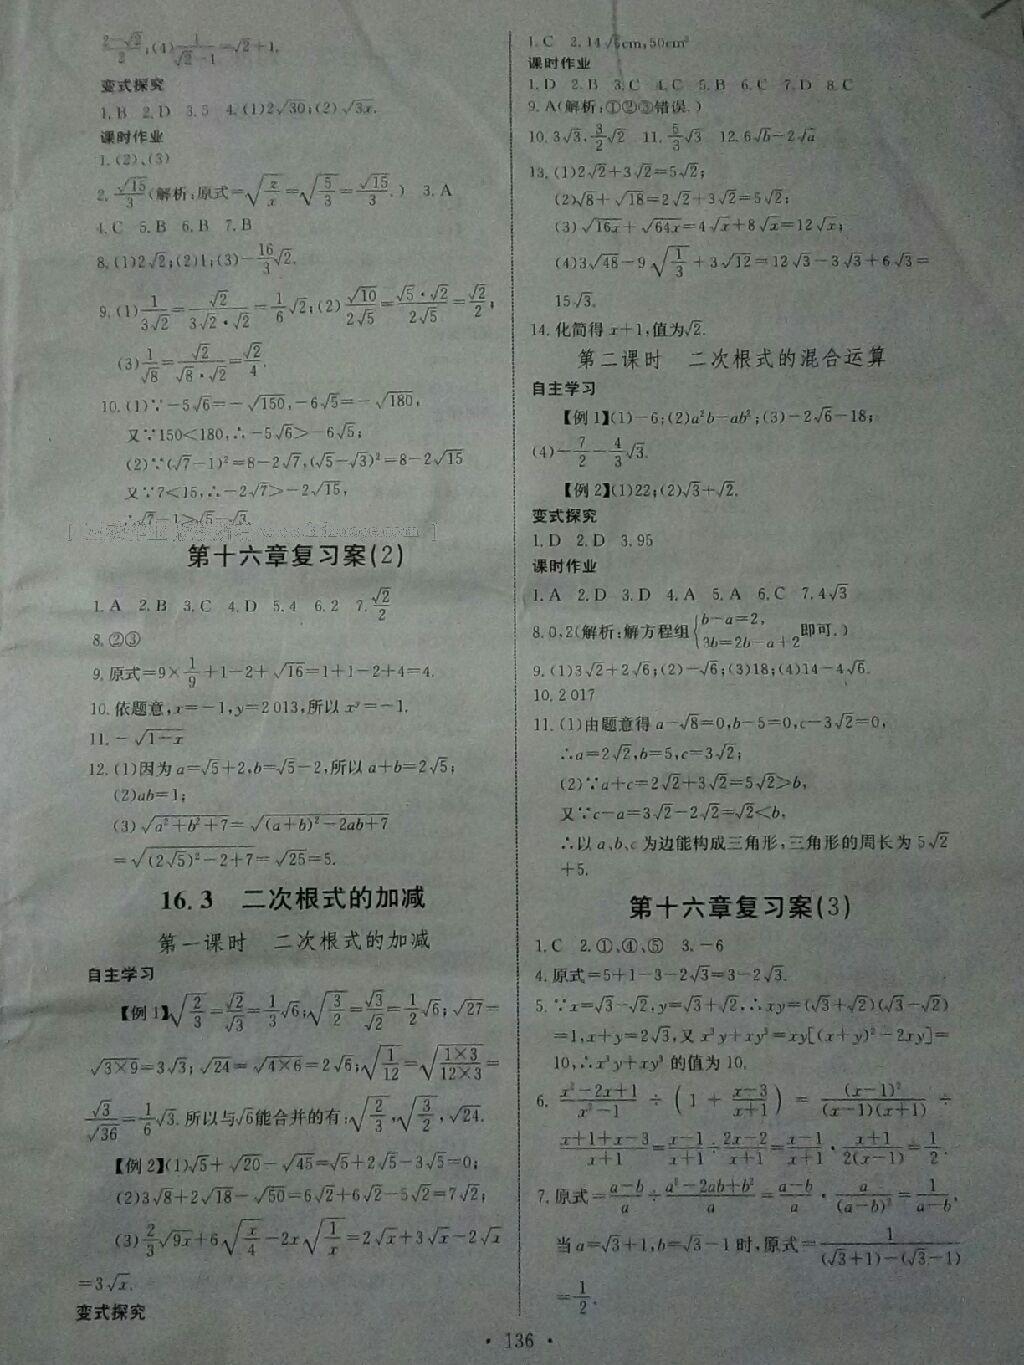 $\frac{2-\sqrt{2}}{2}$;(4)$\frac{1}{\sqrt{2}-1}=\sqrt{2}+1$.
变式探究
1.B 2.D 3.5 4.(1)$2\sqrt{30}$;(2)$\sqrt{3x}$.
课时作业
1.(2)、(3)
2.$\frac{\sqrt{15}}{3}$(解析:原式=$\sqrt{\frac{z}{x}}=\sqrt{\frac{5}{3}}=\frac{\sqrt{15}}{3}$.) 3.A
4.C 5.B 6.B 7.B
8.(1)$2\sqrt{2}$;(2)1;(3)$-\frac{16}{3}\sqrt{2}$.
9.(1)$\frac{1}{3\sqrt{2}}=\frac{\sqrt{2}}{3\sqrt{2}·\sqrt{2}}=\frac{1}{6}\sqrt{2}$;(2)$\frac{\sqrt{10}}{2\sqrt{5}}=\frac{\sqrt{5}·\sqrt{2}}{2\sqrt{5}}=\frac{\sqrt{2}}{2}$;
(3)$\frac{1}{\sqrt{8}}=\frac{\sqrt{2}}{\sqrt{8}·\sqrt{2}}=\frac{\sqrt{2}}{4}$.
10.(1)∵$-5\sqrt{6}=-\sqrt{150}$,$-6\sqrt{5}=-\sqrt{180}$,
又∵150<180,∴$-5\sqrt{6}>-6\sqrt{5}$;
(2)∵$(\sqrt{7}-1)^2=8-2\sqrt{7}$,$(\sqrt{5}-\sqrt{3})^2=8-2\sqrt{15}$
又∵7<15,∴$-2\sqrt{7}>-2\sqrt{15}$,
∴$\sqrt{7}-1>\sqrt{5}-\sqrt{3}$.
第十六章复习案(2)
1.A 2.B 3.C 4.D 5.4 6.2 7.$\frac{\sqrt{2}}{2}$
8.②③
9.原式=$9×\frac{1}{9}+1-2+\sqrt{16}=1+1-2+4=4$.
10.依题意,x=-1,y=2 013,所以$x^y=-1$.
11.$-\sqrt{1-x}$
12.(1)因为$a=\sqrt{5}+2$,$b=\sqrt{5}-2$,所以$a+b=2\sqrt{5}$;
(2)ab=1;
(3)$\sqrt{a^2+b^2+7}=\sqrt{(a+b)^2-2ab+7}$
$=\sqrt{(2\sqrt{5})^2-2+7}=\sqrt{25}=5$.
16.3 二次根式的加减
第一课时 二次根式的加减
自主学习
【例1】$\sqrt{\frac{2}{3}}=\frac{\sqrt{2}}{\sqrt{3}}=\frac{1}{3}\sqrt{6}$;$\sqrt{\frac{3}{2}}=\frac{\sqrt{3}}{\sqrt{2}}=\frac{1}{2}\sqrt{6}$;$\sqrt{27}=$
$\sqrt{3×9}=3\sqrt{3}$;$\sqrt{24}=\sqrt{4×6}=2\sqrt{6}$;$\sqrt{\frac{1}{12}}=\sqrt{\frac{1×3}{12×3}}=$
$\frac{\sqrt{3}}{\sqrt{36}}=\frac{1}{6}\sqrt{3}$.所以与$\sqrt{6}$能合并的有:$\sqrt{\frac{2}{3}}$,$\sqrt{\frac{3}{2}}$,$\sqrt{24}$.
【例2】(1)$\sqrt{5}+\sqrt{20}-\sqrt{45}=\sqrt{5}+2\sqrt{5}-3\sqrt{5}=0$;
(2)$3\sqrt{8}+2\sqrt{18}-\sqrt{50}=6\sqrt{2}+6\sqrt{2}-5\sqrt{2}=7\sqrt{2}$;
(3)$\frac{2}{3}\sqrt{9x}+6\sqrt{\frac{x}{4}}-2x\sqrt{\frac{1}{x}}=2\sqrt{x}+3\sqrt{x}-2\sqrt{x}$
$=3\sqrt{x}$.
变式探究
1.C 2.$14\sqrt{5}$cm,50cm²
课时作业
1.D 2.B 3.C 4.C 5.B 6.C 7.D 8.C
9.A(解析:①②③错误.)
10.$3\sqrt{3}$,$\frac{3}{2}\sqrt{2}$ 11.$\frac{5}{3}\sqrt{3}$ 12.$6\sqrt{b}-2\sqrt{a}$
13.(1)$2\sqrt{2}+3\sqrt{2}=5\sqrt{2}$;
(2)$\sqrt{8}+\sqrt{18}=2\sqrt{2}+3\sqrt{2}=5\sqrt{2}$;
(3)$\sqrt{16x}+\sqrt{64x}=4\sqrt{x}+8\sqrt{x}=12\sqrt{x}$;
(4)$3\sqrt{48}-9\sqrt{\frac{1}{3}}+3\sqrt{12}=12\sqrt{3}-3\sqrt{3}+6\sqrt{3}=$
$15\sqrt{3}$.
14.化简得x+1,值为$\sqrt{2}$.
第二课时 二次根式的混合运算
自主学习
【例1】(1)-6;(2)$a^2b-ab^2$;(3)$-2\sqrt{6}-18$;
(4)$-\frac{7}{2}-\frac{4}{3}\sqrt{3}$.
【例2】(1)22;(2)$\sqrt{3}+\sqrt{2}$.
变式探究
1.D 2.D 3.95
课时作业
1.A 2.D 3.D 4.A 5.A 6.C 7.$4\sqrt{3}$
8.0,2(解析:解方程组$\begin{cases}b-a=2,\\3b=2b-a+2\end{cases}$即可.)
9.(1)$3\sqrt{2}+2\sqrt{6}$;(2)$-\sqrt{6}$;(3)18;(4)$14-4\sqrt{6}$.
10.2 017
11.(1)由题意得$a-\sqrt{8}=0$,$b-5=0$,$c-3\sqrt{2}=0$,
∴$a=2\sqrt{2}$,$b=5$,$c=3\sqrt{2}$;
(2)∵$a+c=2\sqrt{2}+3\sqrt{2}=5\sqrt{2}>b$,
又∵$c-a=3\sqrt{2}-2\sqrt{2}=\sqrt{2}<b$,
∴以a、b、c为边能构成三角形,三角形的周长为$5\sqrt{2}$
+5.
第十六章复习案(3)
1.C 2.①、④、⑤ 3.-6
4.原式=$5+1-3-2\sqrt{3}=3-2\sqrt{3}$.
5.∵$x=\sqrt{3}-\sqrt{2}$,$y=\sqrt{3}+\sqrt{2}$,∴$xy=(\sqrt{3}+\sqrt{2})(\sqrt{3}-\sqrt{2})$
$=1$,$x+y=2\sqrt{3}$,又$x^3y+xy^3=xy[(x+y)^2-2xy]=$
10,∴$x^3y+xy^3$的值为10.
6.$\frac{x^2-2x+1}{x^2-1}÷\left(1+\frac{x-3}{x+1}\right)=\frac{(x-1)^2}{(x-1)(x+1)}÷$
$\frac{x+1+x-3}{x+1}=\frac{x-1}{x+1}÷\frac{2x-2}{x+1}=\frac{x-1}{x+1}·\frac{x+1}{2(x-1)}=\frac{1}{2}$.
7.原式=$\frac{a-b}{a}÷\frac{a^2-2ab+b^2}{a}=\frac{a-b}{a}·\frac{a}{(a-b)^2}=\frac{1}{a-b}$,
当$a=\sqrt{3}+1$,$b=\sqrt{3}-1$时,原式=$\frac{1}{(\sqrt{3}+1)-(\sqrt{3}-1)}$
$=\frac{1}{2}$.
· 136 ·